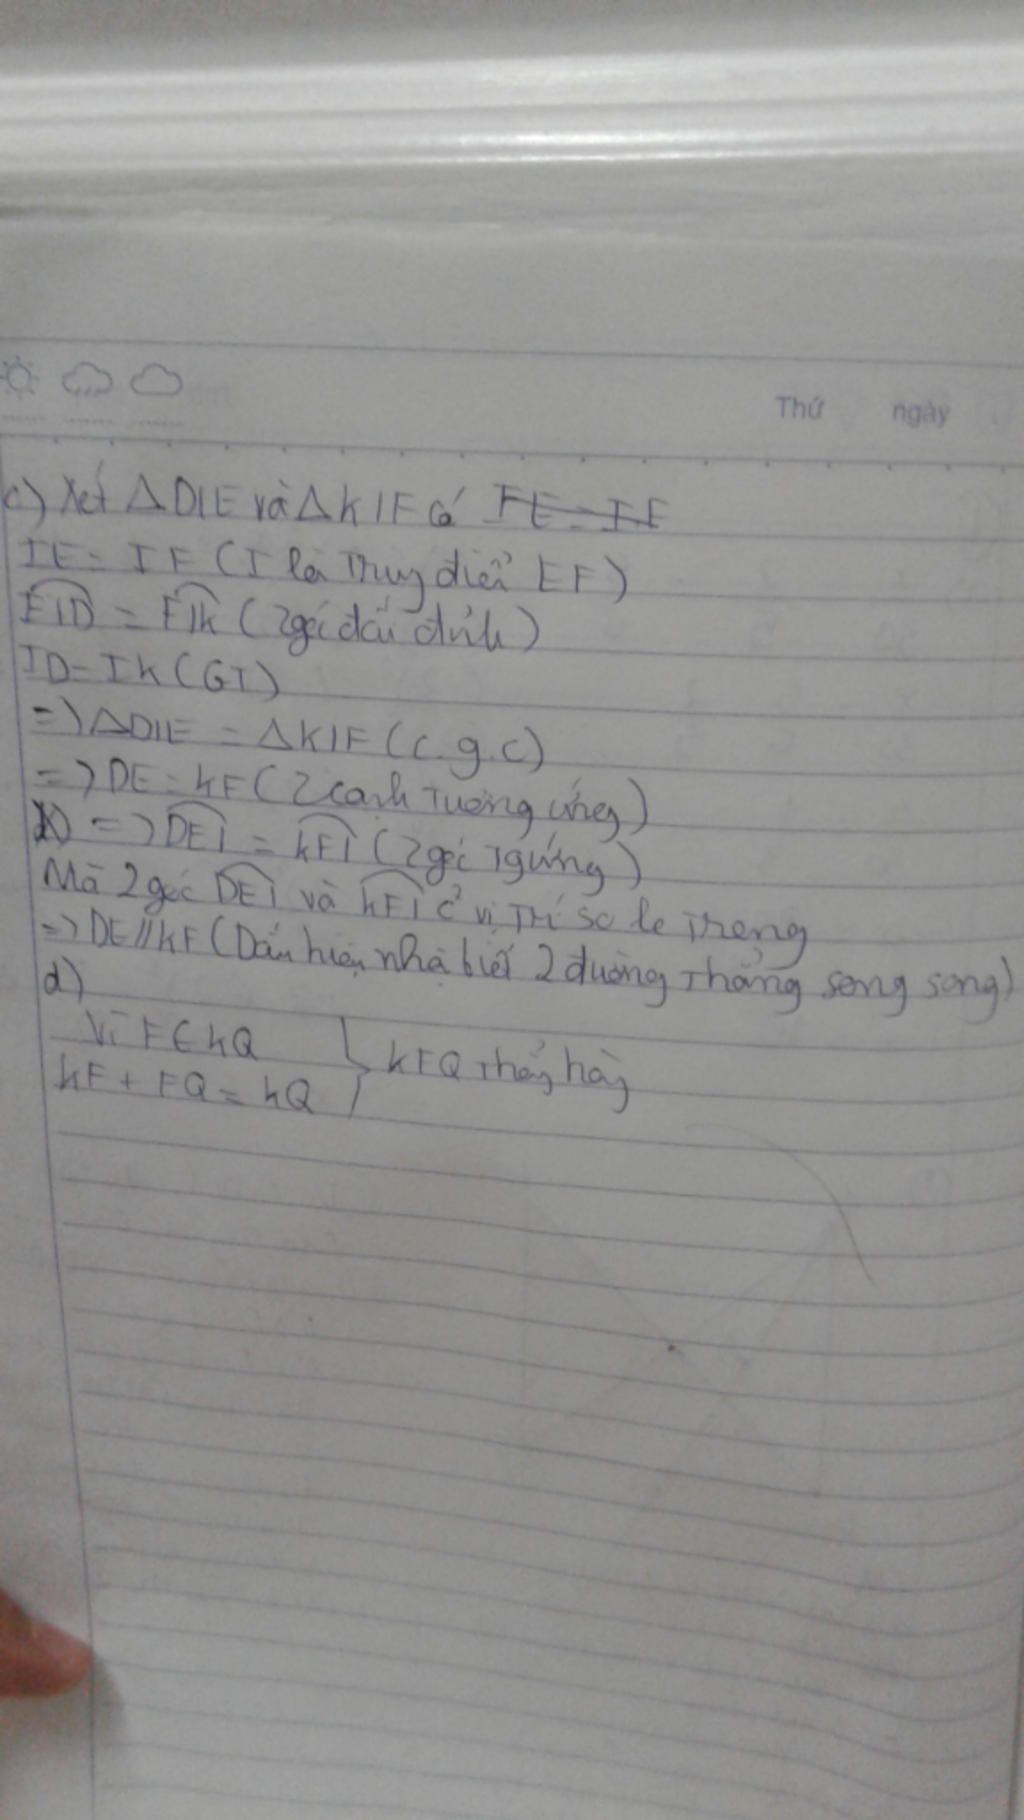 Thứ ngày
c) Xét ΔDIE và ΔKIF có IE = IF
IE = IF (I là Trung điểm EF)
EID = FIK (2 góc đối đỉnh)
ID = IK (GT)
=> ΔDIE = ΔKIF (c.g.c)
=> DE = KF (2 cạnh Tương ứng)
=> DEI = KFI (2 góc Tg ứng)
Mà 2 góc DEI và KFI ở vị Trí so le Trong
=> DE // KF (Dấu hiệu nhận biết 2 đường Thẳng song song)
d)
Vì F ∈ KQ
KF + FQ = KQ } KFQ Thẳng hàng